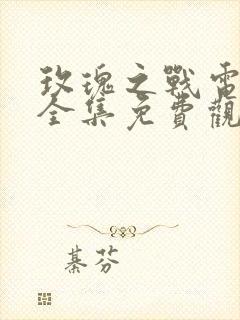 玫瑰之戰電
全集免費觀
綦芬